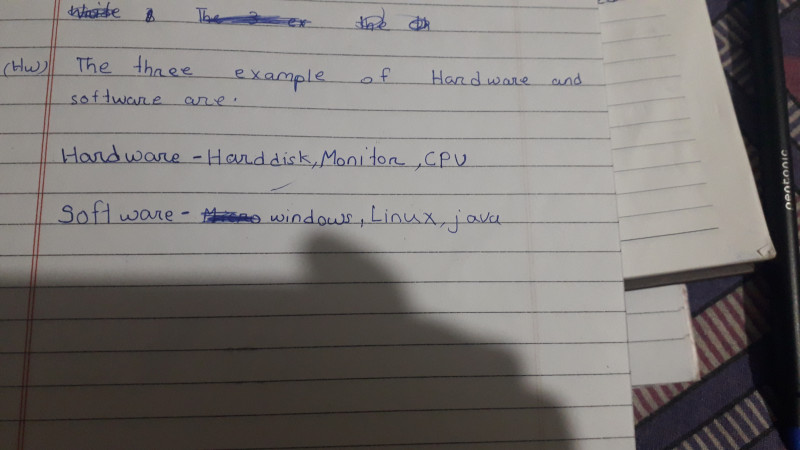 The 3 ex the
(HW) The three example of Hardware and
software are.
Hardware - Harddisk, Monitor, CPU
Software - Micro windows, Linux, java